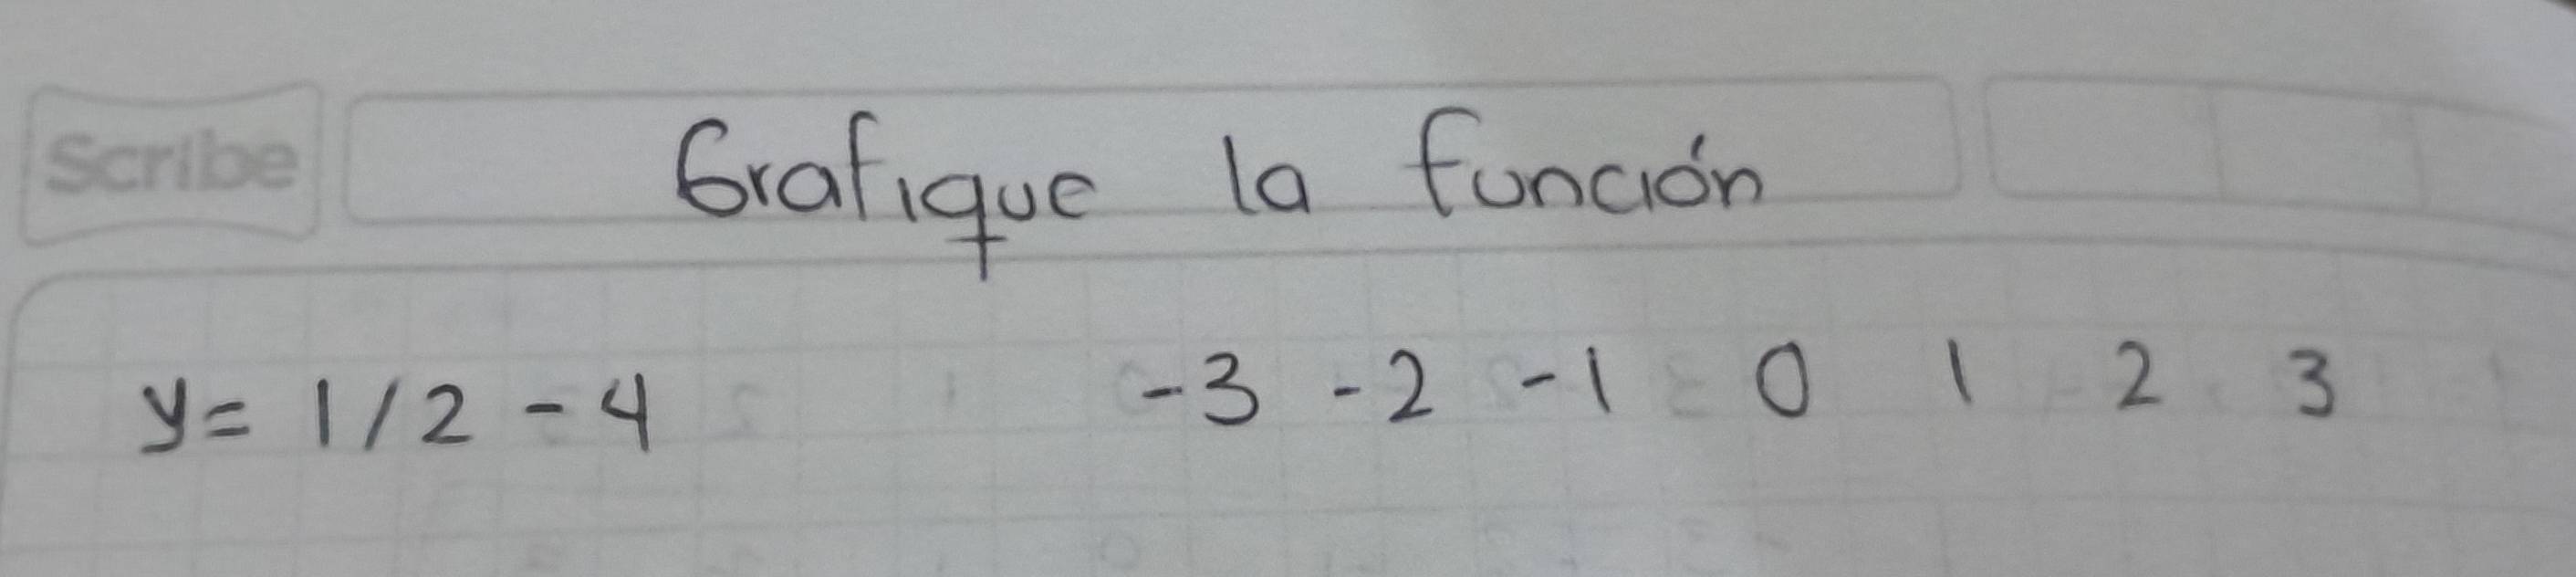 Scribe
Grafique la función
y= 1/2 -4 -3 -2 -1 0 1 2 3